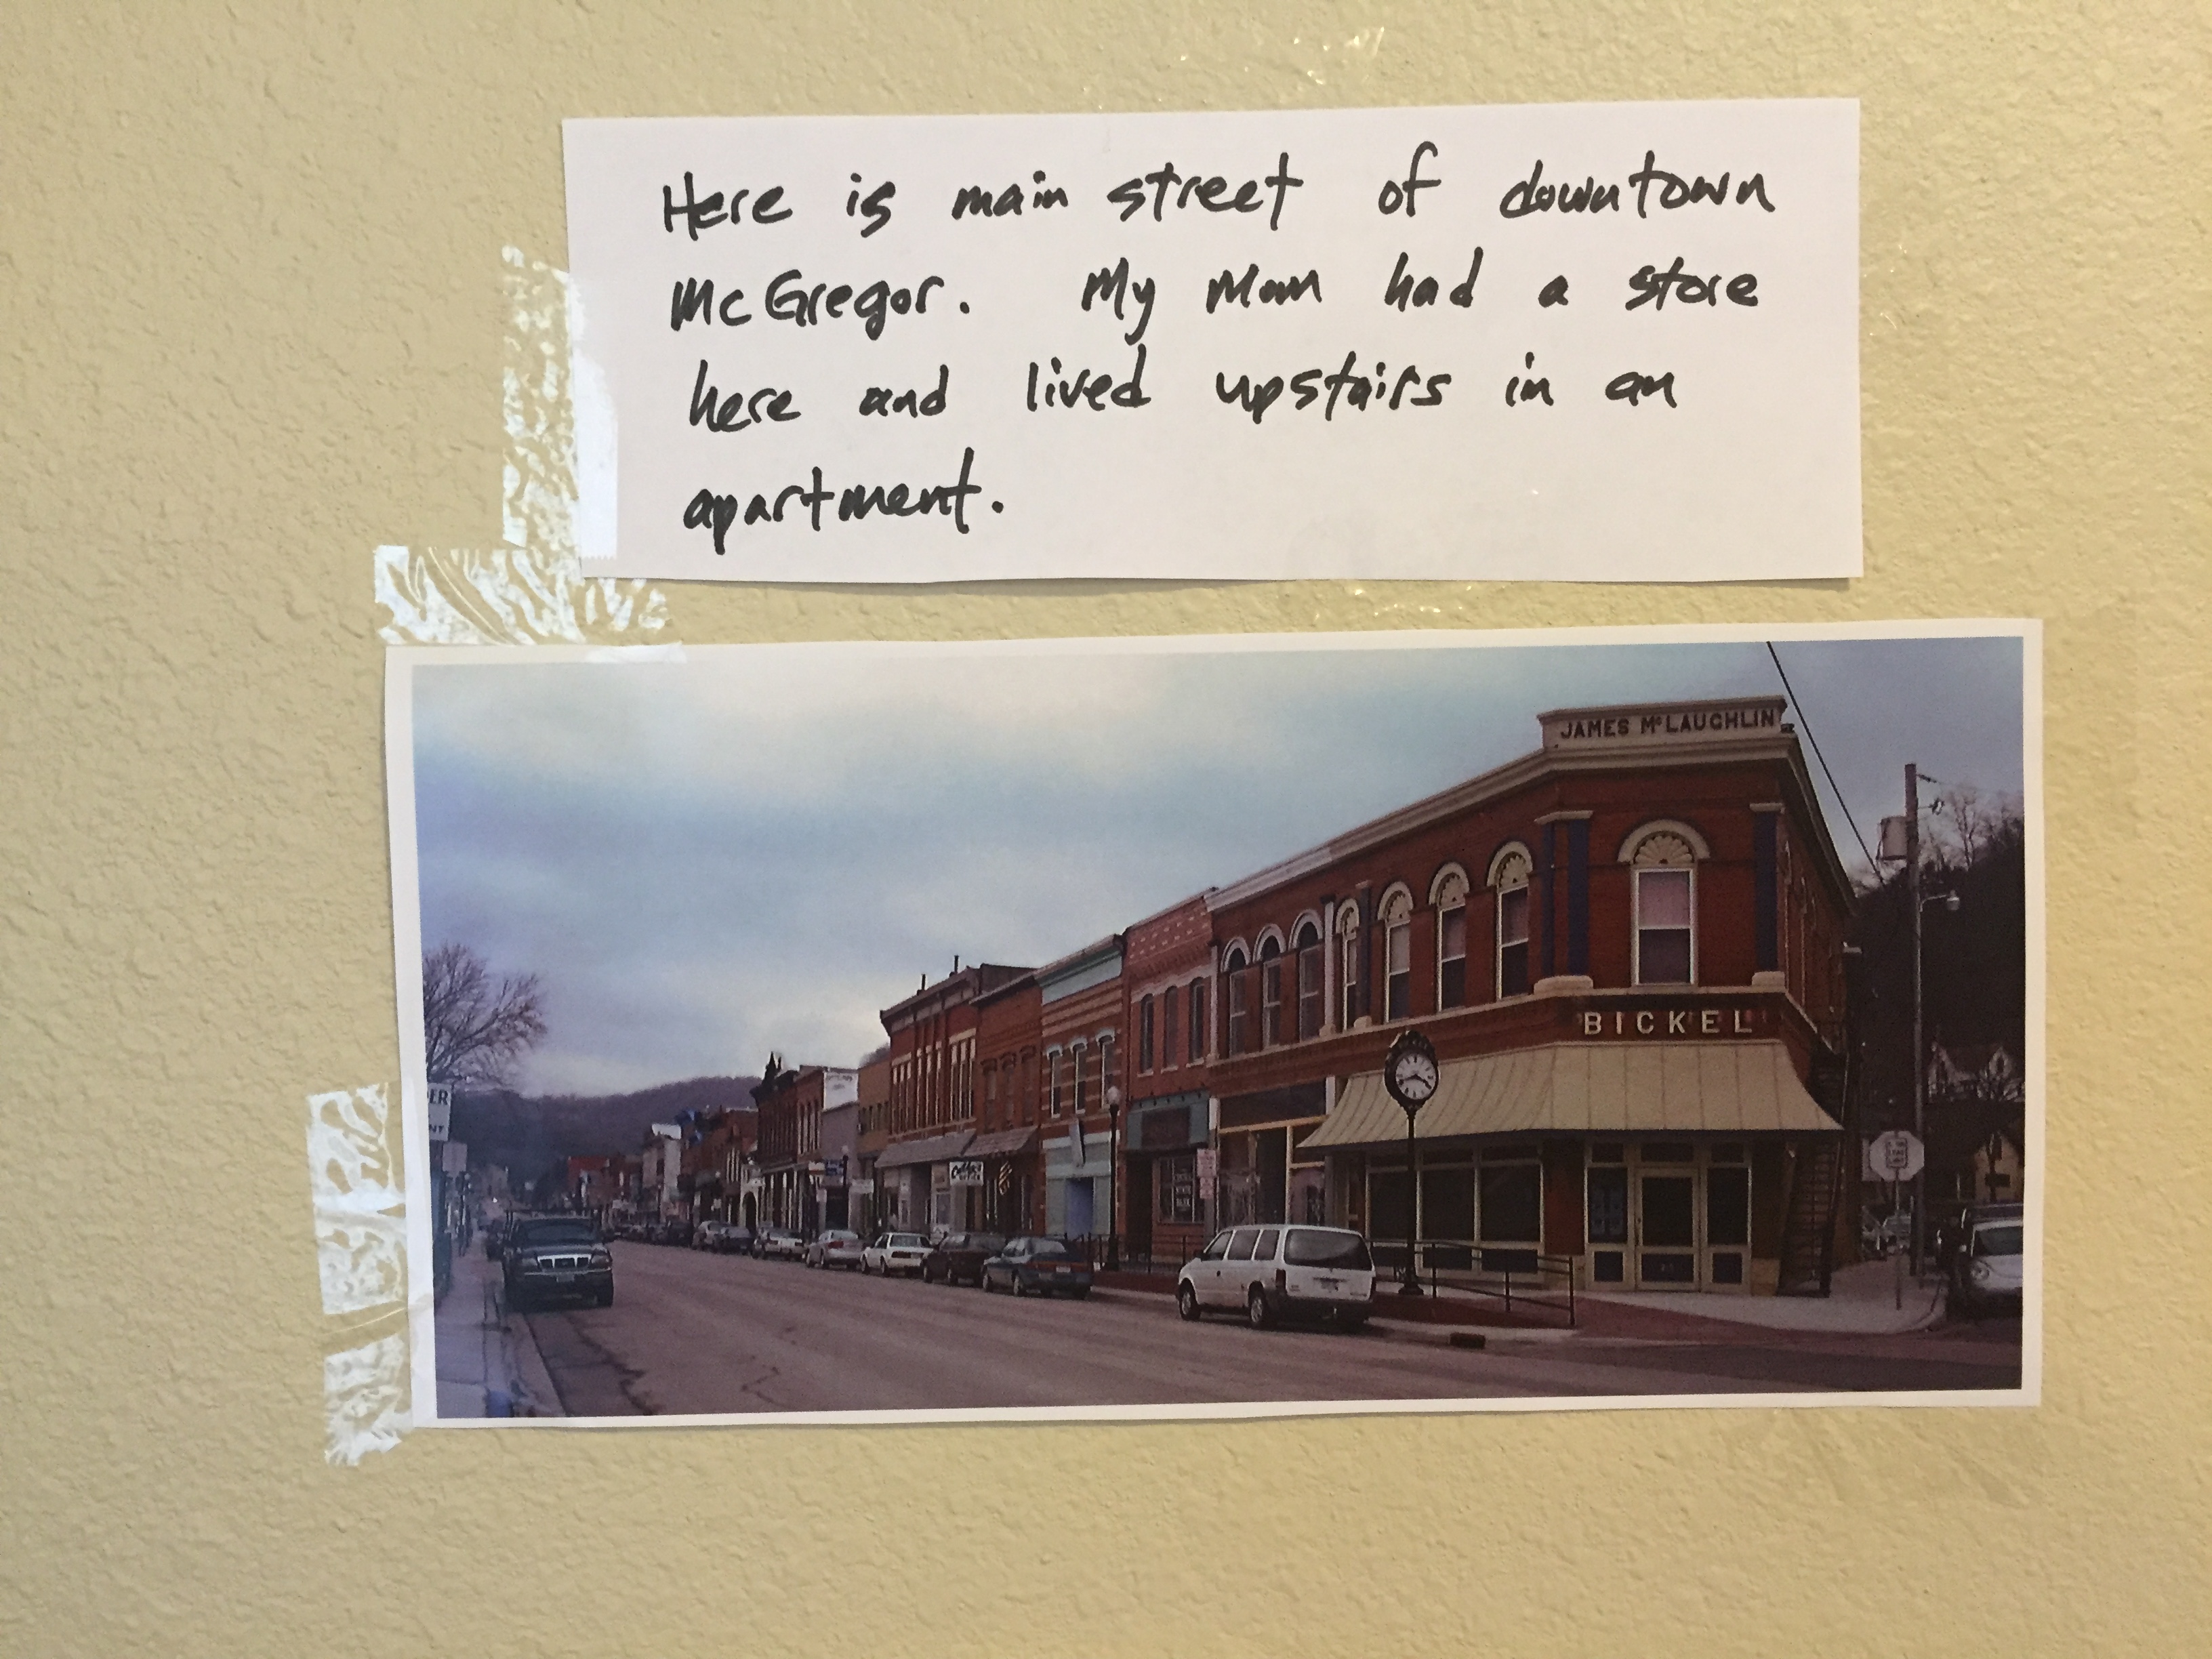 Here is main street of downtown
McGregor. My Mom had a store
here and lived upstairs in an
apartment.
JAMES McLAUGHLIN
BICKEL
ER
NT